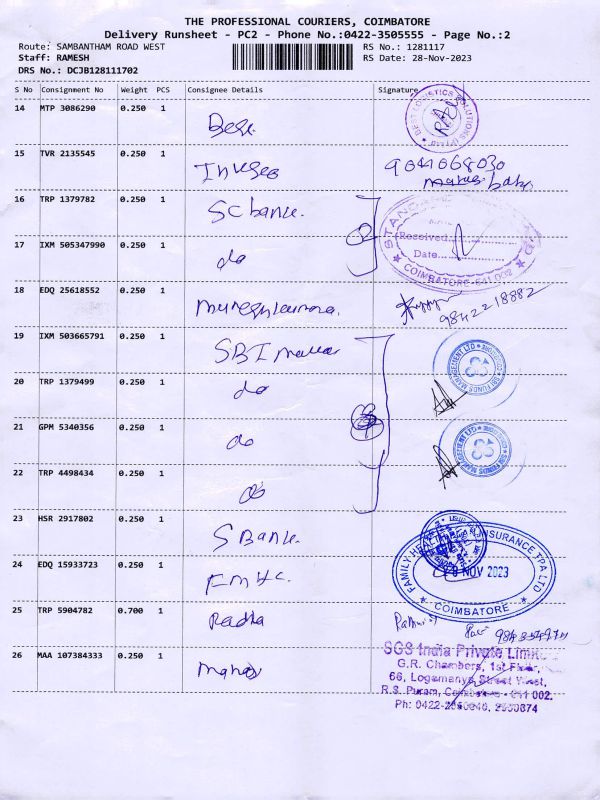 THE PROFESSIONAL COURIERS, COIMBATORE
Delivery Runsheet - PC2 - Phone No.:0422-3505555 - Page No.:2
Route: SAMBANTHAM ROAD WEST RS No.: 1281117
Staff: RAMESH RS Date: 28-Nov-2023
DRS No.: DCJB128111702
S No Consignment No Weight PCS Consignee Details Signature
14 MTP 3086290 0.250 1
BEST LOGISTICS SOLUTIONS (P) Ltd
15 TVR 2135545 0.250 1
16 TRP 1379782 0.250 1 SC bank.
17 IXM 505347990 0.250 1 do
Received
Date
COIMBATORE-641 002
18 EDQ 25618552 0.250 1
9842218882
19 IXM 503665791 0.250 1 SBI
SBI FUNDS MANAGEMENT LTD COIMBATORE
20 TRP 1379499 0.250 1 do
21 GPM 5340356 0.250 1 do
SBI FUNDS MANAGEMENT LTD COIMBATORE
22 TRP 4498434 0.250 1 do
23 HSR 2917802 0.250 1 S Bank.
24 EDQ 15933723 0.250 1
FAMILY HEALTH INSURANCE TPA LTD
8 NOV 2023
COIMBATORE
25 TRP 5904782 0.700 1 Radha
26 MAA 107384333 0.250 1
SGS India Private Limi
G.R. Chambers, 1st Floor,
66, Logamanya Street West,
R.S. Puram, Coimbatore - 641 002.
Ph: 0422-